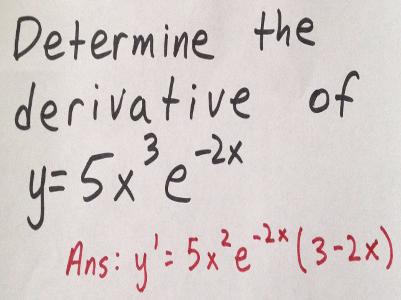 Determine the
derivative of
y=5x³e⁻²ˣ
Ans: y'=5x²e⁻²ˣ(3-2x)